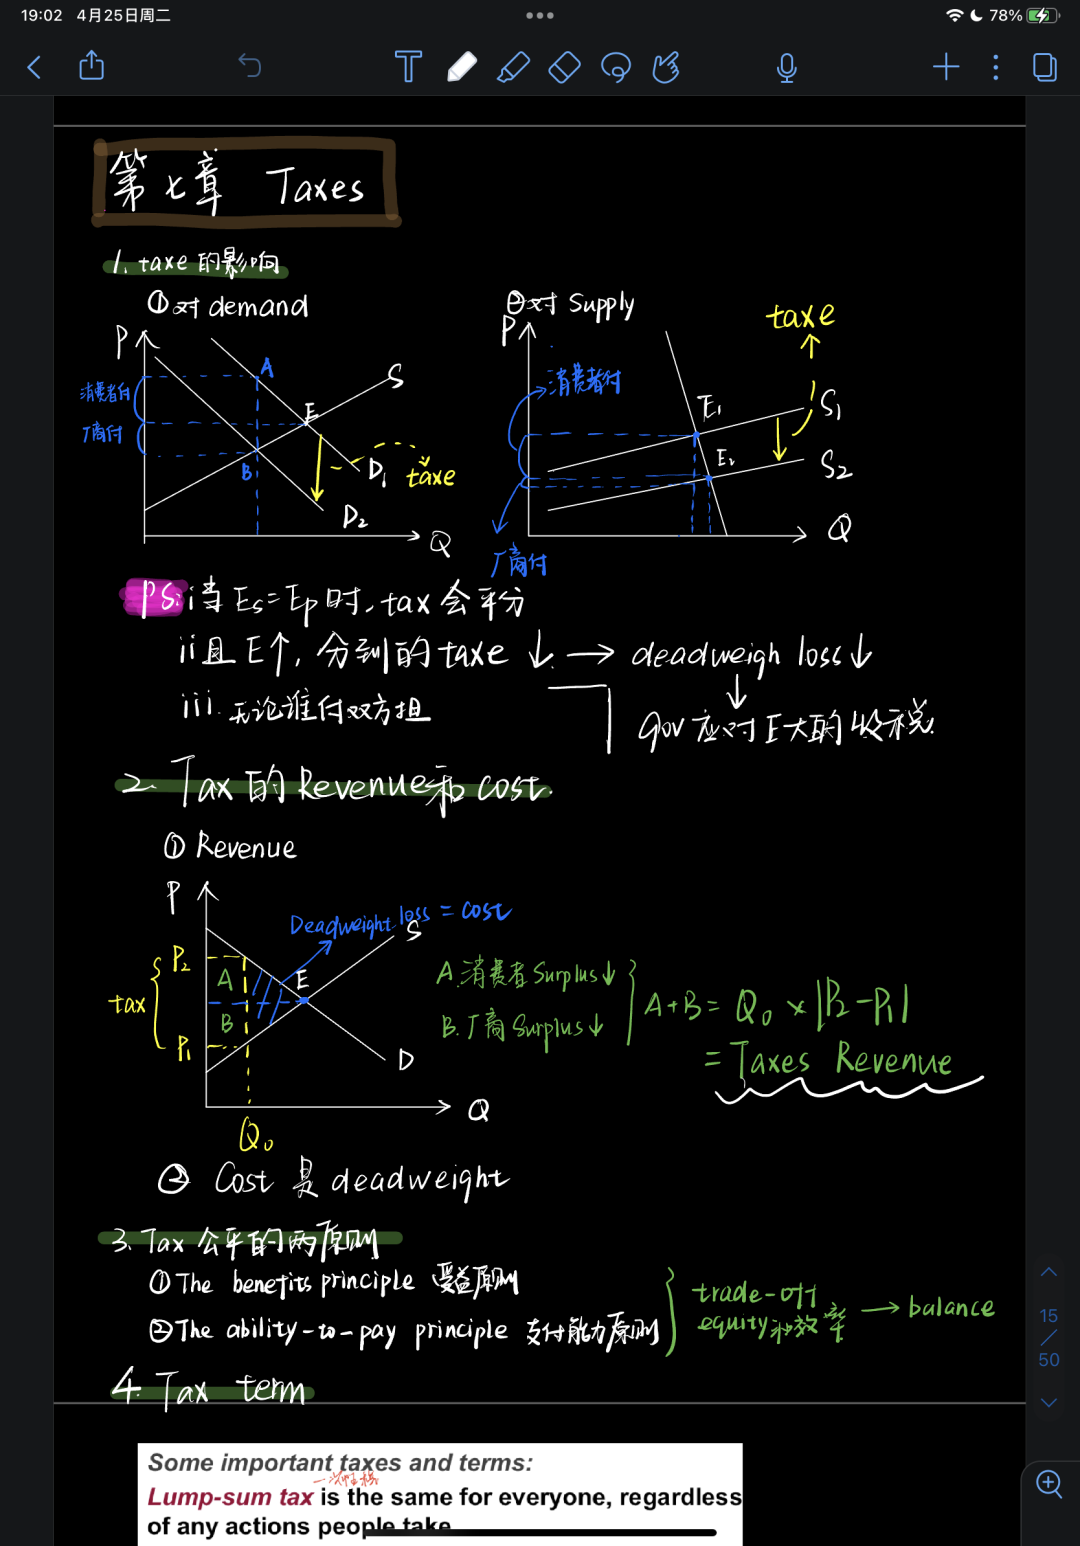 19:02 4月25日周二
78%
第七章 Taxes
1. taxe 的影响
①对 demand
②对 Supply
taxe
P
P
A
S
消费者付
消费者付
厂商付
E
E₁
S₁
B
D₁
taxe
E₂
S₂
D₂
Q
Q
厂商付
PS: i 当 Es=Ep 时, tax 会平分
ii 且 E↑, 分到的 taxe ↓ → deadweigh loss↓
iii. 无论谁付双方担
gov 应对 E大的收税
2. Tax 的 Revenue和 cost.
① Revenue
P
Deadweight loss = cost
S
P₂
A
E
A.消费者 Surplus↓
tax
A+B = Q₀ × |P₂-P₁|
B
B.厂商 Surplus↓
P₁
= Taxes Revenue
D
Q
Q₀
② Cost 是 deadweight
3. Tax 公平的两原则
① The benefits principle 受益原则
② The ability-to-pay principle 支付能力原则
trade-off
equity和效率 → balance
15
/
50
4. Tax term
Some important taxes and terms:
Lump-sum tax is the same for everyone, regardless
of any actions people take